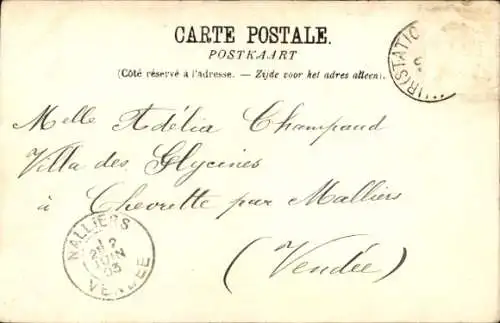 CARTE POSTALE.
POSTKAART
(Côté réservé à l'adresse. — Zijde voor het adres alleen).
Melle Adélia Champaud
Villa des Glycines
à Chevrette par Nalliers
(Vendée)
NALLIERS
JUIN
03
VENDEE